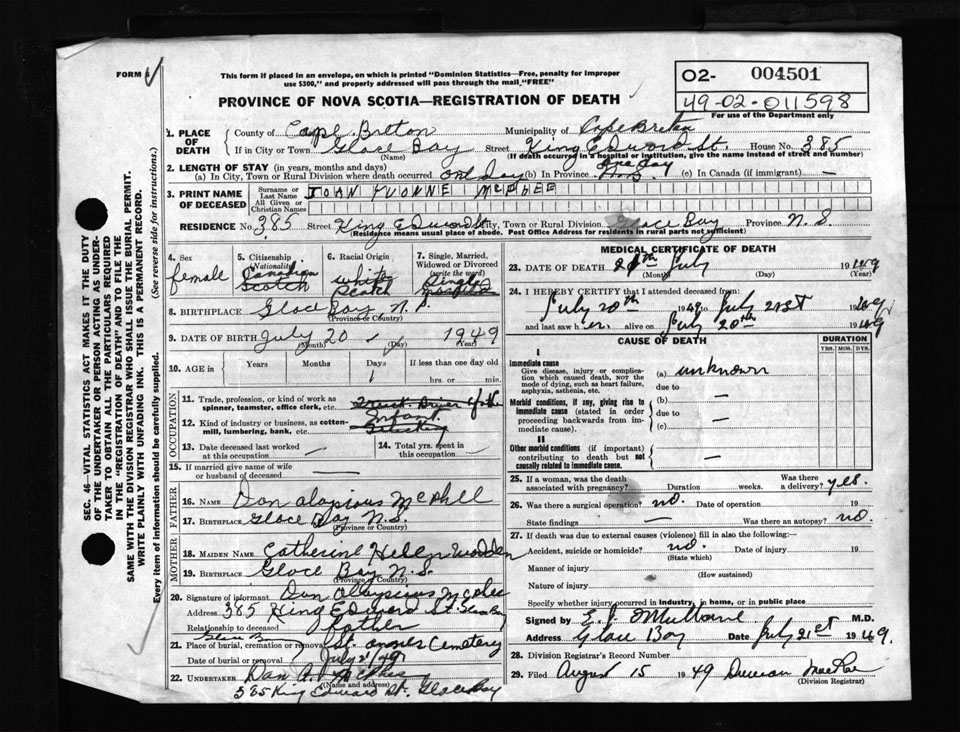 FORM 6
This form if placed in an envelope, on which is printed "Dominion Statistics—Free, penalty for improper
use $300," and properly addressed will pass through the mail "FREE"
PROVINCE OF NOVA SCOTIA—REGISTRATION OF DEATH
O2- 004501
49-02-011598
For use of the Department only
SEC. 46—VITAL STATISTICS ACT MAKES IT THE DUTY
OF THE UNDERTAKER OR PERSON ACTING AS UNDER-
TAKER TO OBTAIN ALL THE PARTICULARS REQUIRED
IN THE "REGISTRATION OF DEATH" AND TO FILE THE
SAME WITH THE DIVISION REGISTRAR WHO SHALL ISSUE THE BURIAL PERMIT.
WRITE PLAINLY WITH UNFADING INK. THIS IS A PERMANENT RECORD.
Every item of information should be carefully supplied. (See reverse side for instructions.)
1. PLACE OF DEATH County of Cape Breton Municipality of Cape Breton
If in City or Town Glace Bay Street King Edward St. House No. 385
(Name) (If death occurred in a hospital or institution, give the name instead of street and number)
2. LENGTH OF STAY (in years, months and days)
(a) In City, Town or Rural Division where death occurred. one Day (b) In Province one day (c) In Canada (if immigrant) —
3. PRINT NAME OF DECEASED Surname or Last Name All Given or Christian Names JOAN YVONNE McPHEE
RESIDENCE No. 385 Street King Edward St City, Town or Rural Division Glace Bay Province N. S.
(Residence means usual place of abode. Post Office Address for residents in rural parts not sufficient)
4. Sex 5. Citizenship (Nationality) 6. Racial Origin 7. Single, Married, Widowed or Divorced (write the word)
female Canadian Scotch white Scotch Single
8. BIRTHPLACE Glace Bay N. S.
(Province or Country)
9. DATE OF BIRTH July 20 1949
(Month) (Day) (Year)
10. AGE in Years Months Days If less than one day old
1 hrs. or min.
OCCUPATION
11. Trade, profession, or kind of work as
spinner, teamster, office clerk, etc.
12. Kind of industry or business, as cotton-
mill, lumbering, bank, etc. Infant
13. Date deceased last worked
at this occupation —
14. Total yrs. spent in
this occupation —
15. If married give name of wife
or husband of deceased —
FATHER
16. NAME Dan Aloysious McPhee
17. BIRTHPLACE Glace Bay N.S.
(Province or Country)
MOTHER
18. MAIDEN NAME Catherine Helen Wadden
19. BIRTHPLACE Glace Bay N.S.
(Province or Country)
20. Signature of informant Dan Alloysius McPhee
Address 385 King Edward St. Glace Bay
Relationship to deceased Father
Glace Bay
21. Place of burial, cremation or removal St. Cemetery
Date of burial or removal July 21 49
22. UNDERTAKER Dan A. McPhee
(Name and address)
385 King Edward St. Glace Bay
MEDICAL CERTIFICATE OF DEATH
23. DATE OF DEATH July 1949
(Month) (Day) (Year)
24. I HEREBY CERTIFY that I attended deceased from
July 20th 1949 to July 21st 1949
and last saw her alive on July 20th 1949
CAUSE OF DEATH DURATION
YRS. MOS. DYS.
I
Immediate cause
Give disease, injury or complica-
tion which caused death, NOT the
mode of dying, such as heart failure,
asphyxia, asthenia, etc.
(a) unknown
due to
Morbid conditions, if any, giving rise to
immediate cause (stated in order
proceeding backwards from im-
mediate cause).
(b) —
due to
(c) —
II
Other morbid conditions (if important)
contributing to death but not
causally related to immediate cause. —
25. If a woman, was the death
associated with pregnancy? Duration weeks. Was there
a delivery? yes.
26. Was there a surgical operation? no. Date of operation 19
State findings — Was there an autopsy? no.
27. If death was due to external causes (violence) fill in also the following:—
Accident, suicide or homicide? no. Date of injury 19
(State which)
Manner of injury
(How sustained)
Nature of injury
Specify whether injury occurred in industry, in home, or in public place
Signed by M.D.
Address Glace Bay Date July 21st 1949.
28. Division Registrar's Record Number
29. Filed August 15 1949 Duncan MacRae
(Division Registrar)